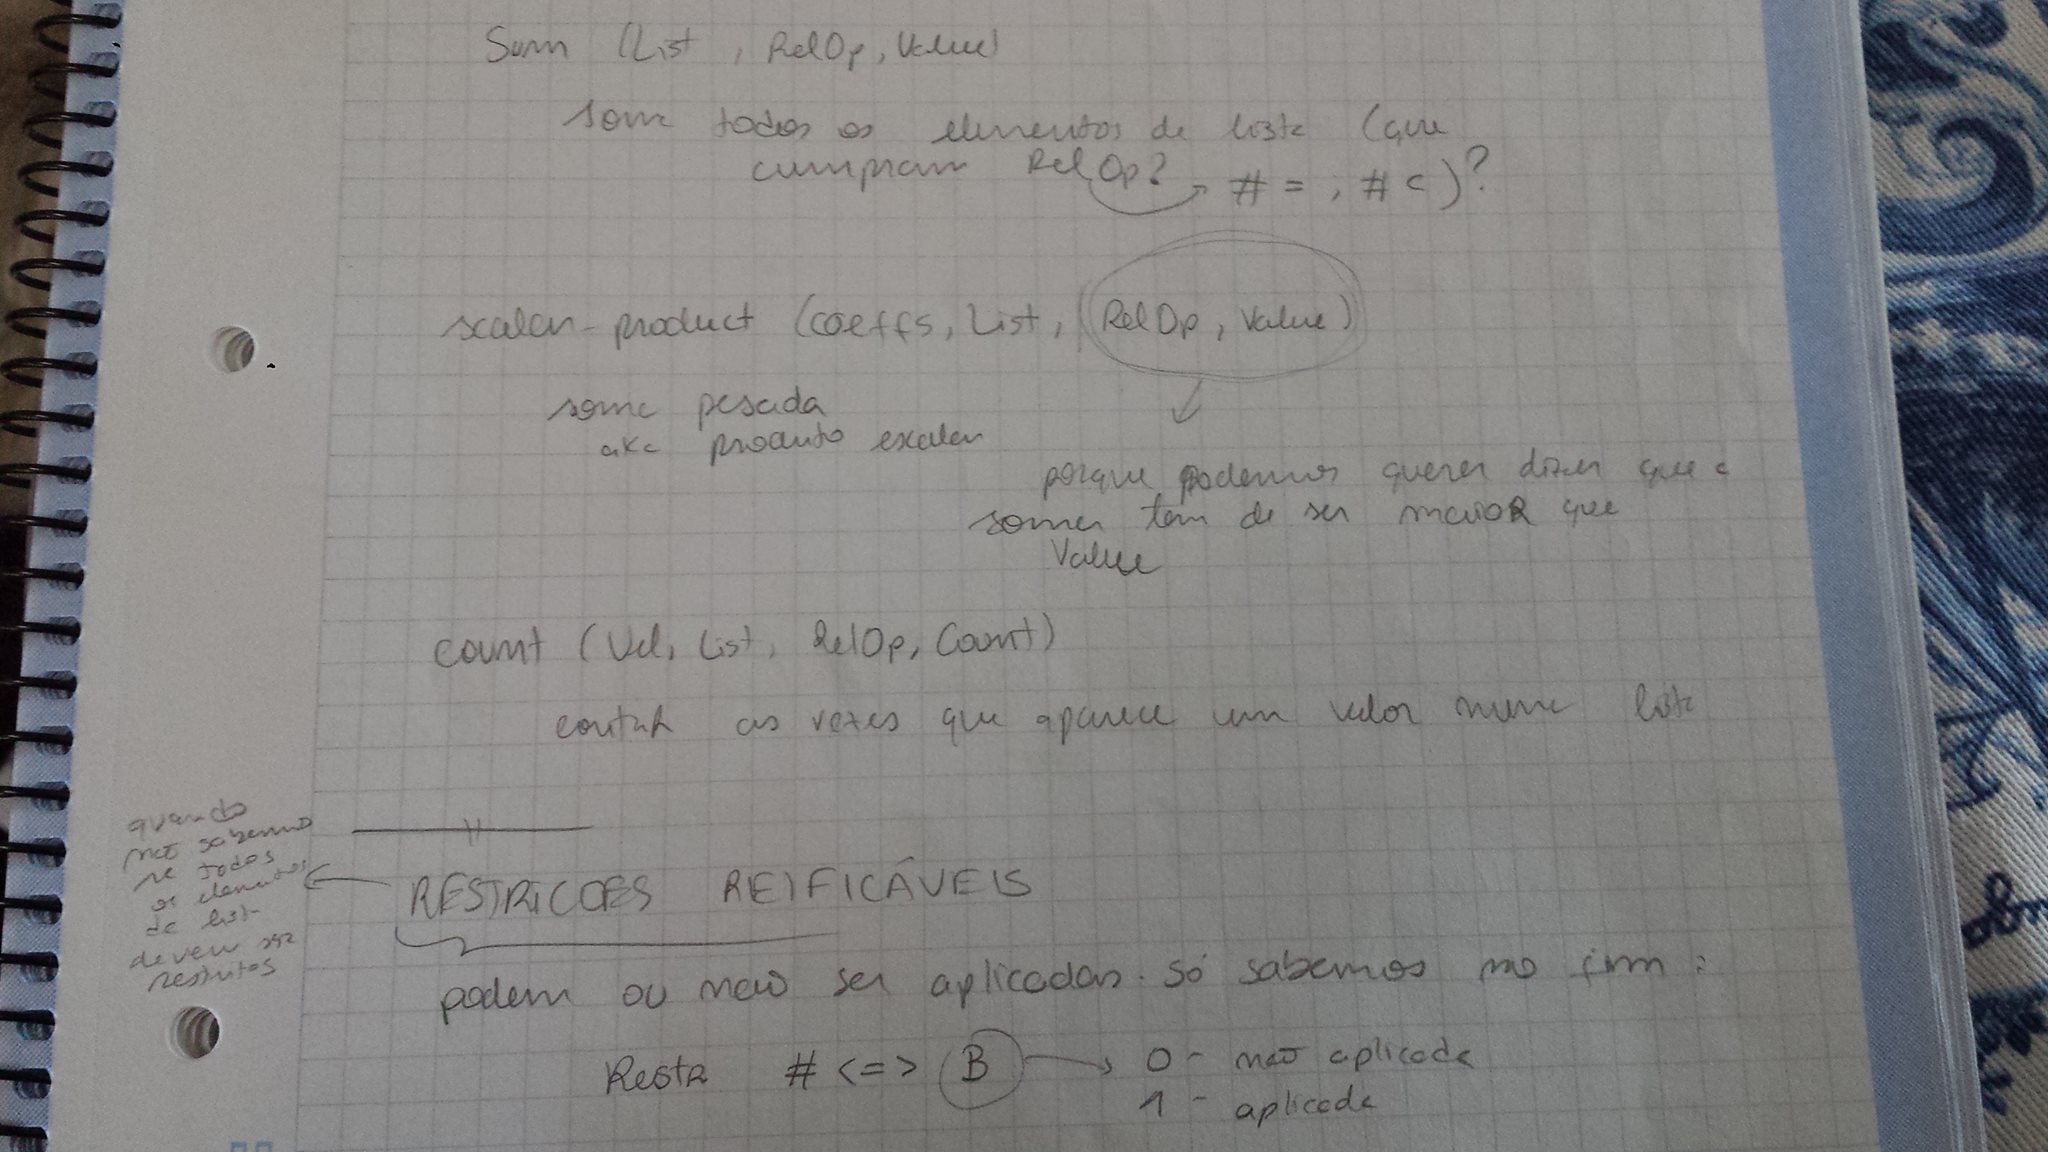 Sum (List , RelOp, Value)
soma todos os elementos da lista (que
cumpram RelOp? → #= ; #<)?
scalar-product (coeffs, List, RelOp, Value)
soma pesada
aka produto escalar
porque podemos querer dizer que a
soma tem de ser maior que
Value
count (Val, List, RelOp, Count)
contar as vezes que aparece um valor numa lista
quando
não sabemos
se todos
os elementos
da list
devem ser
restritos
RESTRICOES REIFICÁVEIS
podem ou não ser aplicadas. só sabemos no fim:
Restr #<=> B → 0 - não aplicada
1 - aplicada